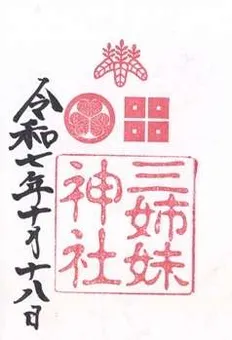 三姉妹
神社
令和七年十月十八日